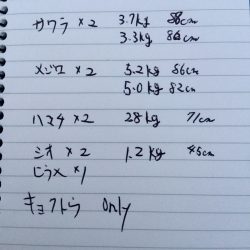 サワラ×2 3.7kg 88cm
3.3kg 86cm
メジロ×2 5.2kg 86cm
5.0kg 82cm
ハマチ×2 2.8kg 71cm
シオ×2 1.2kg 45cm
ヒラメ×1
キョクトウ only